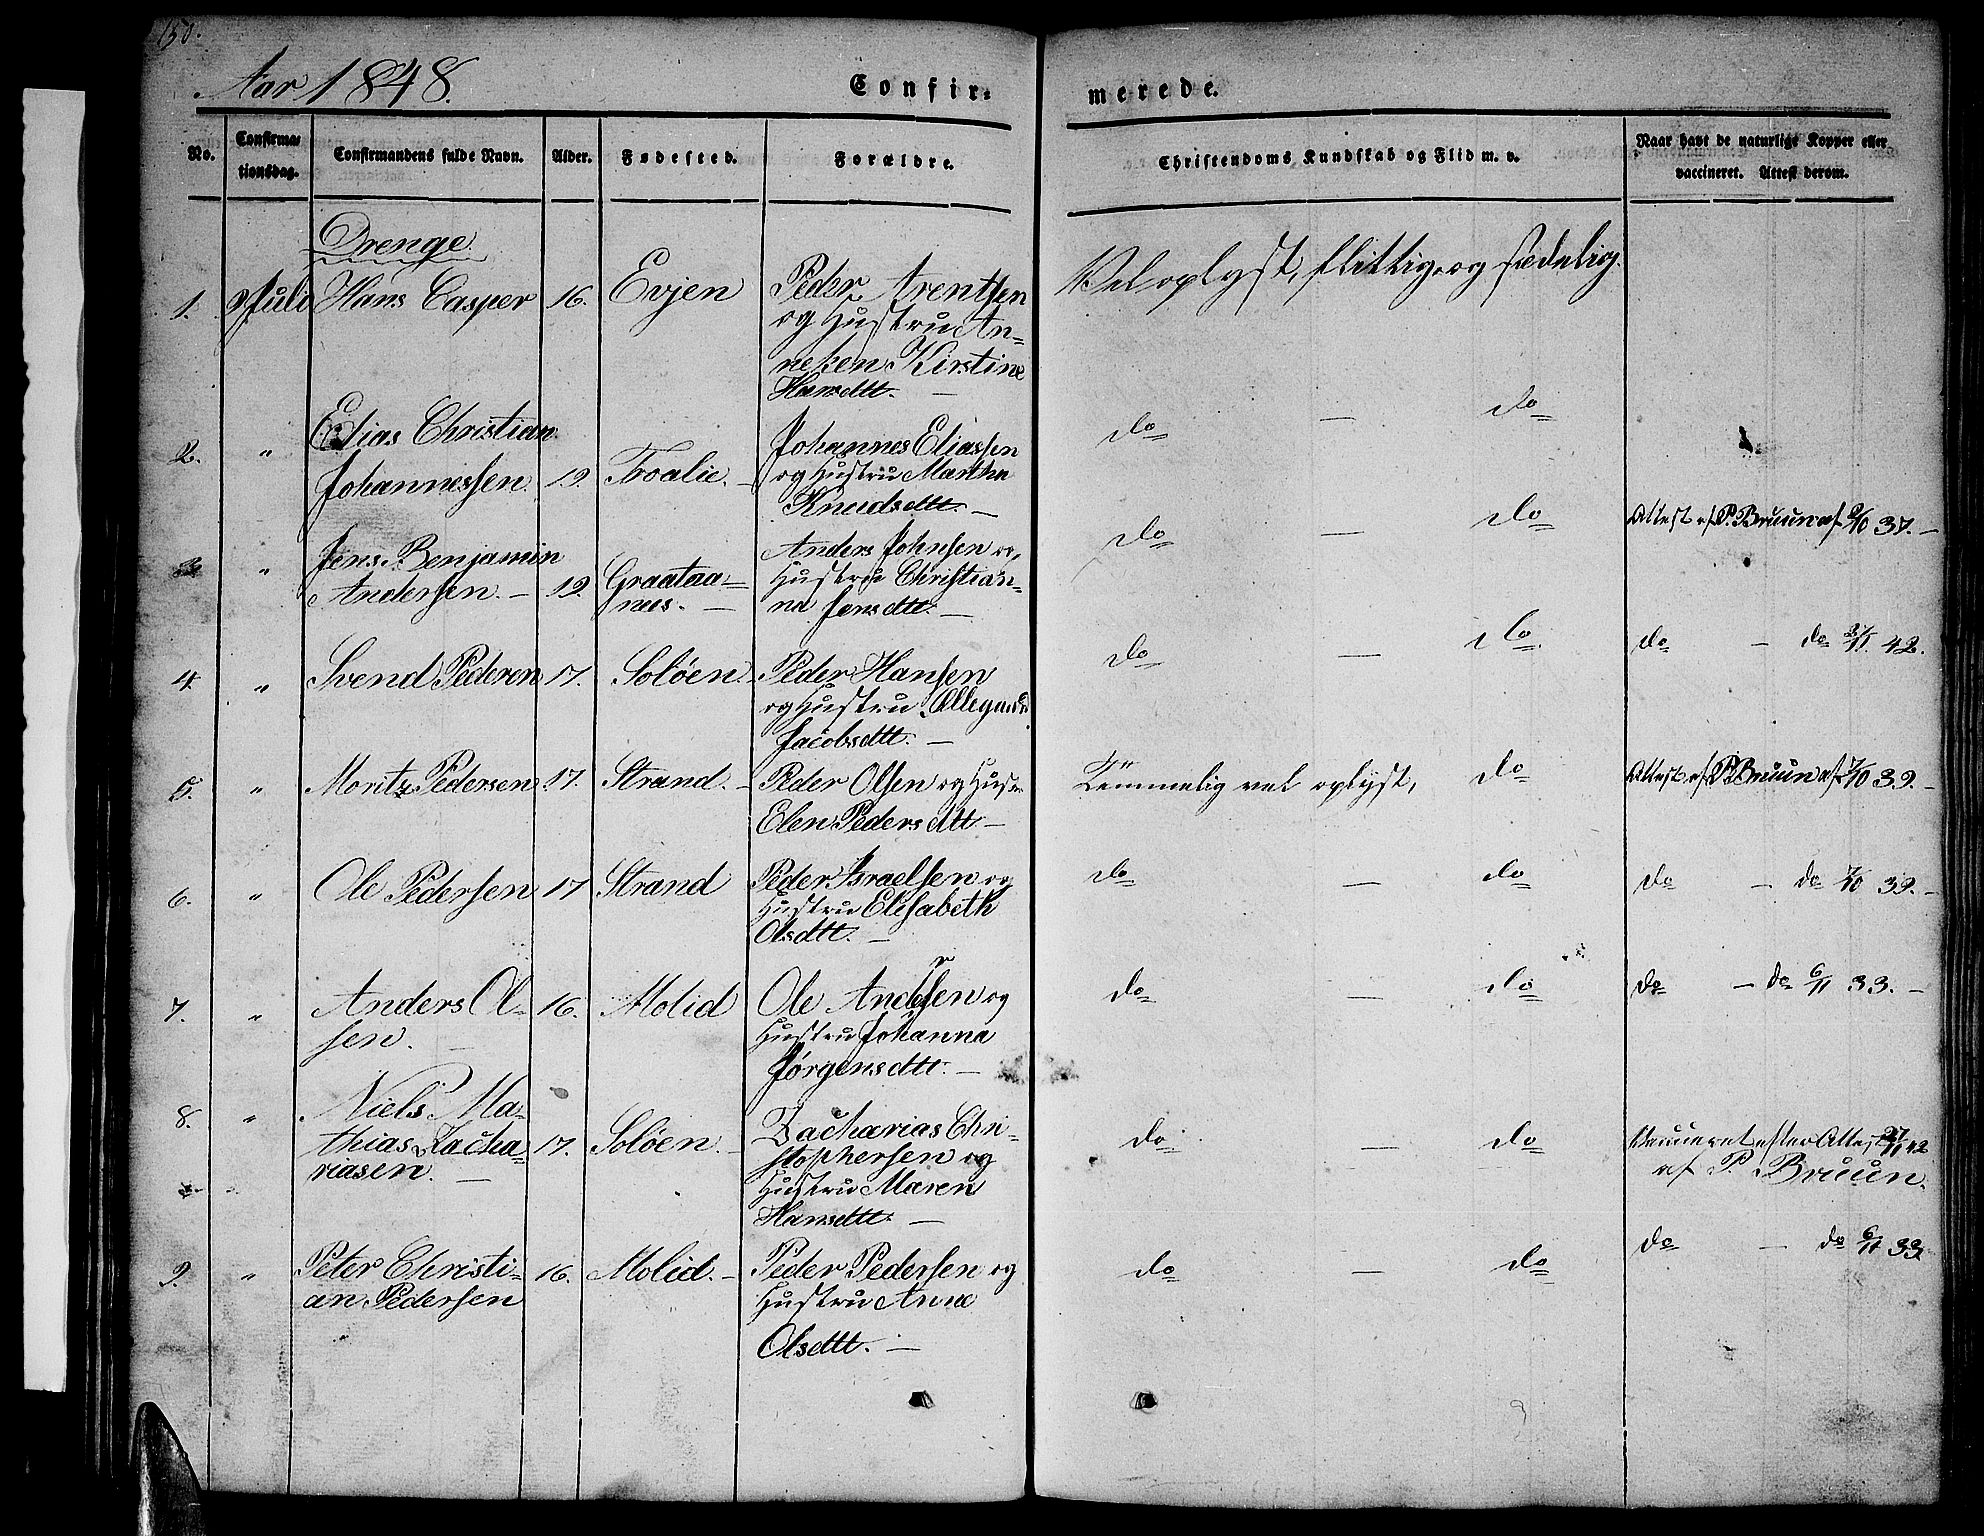 150.
Aar 1848.
Confir-
merede.
No.
Confirma-
tionsdag.
Confirmandens fulde Navn.
Alder.
Fødested.
Forældre.
Christendoms Kundskab og Flid m. v.
Naar havt de naturlige Kopper eller
vaccineret. Attest derom.
Drenge
1. Juli Hans Casper 16. Evjen
Peder Arentsen
og Hustru An-
neken Kirstine
Hansdtt.
Vel oplyst, flittig og sædelig.
2. " Elias Christian
Johannessen. 19. Troalie.
Johannes Eliassen
og Hustru Martha
Knudsdtt.
do — do
3. " Jens Benjamin
Andersen. 19. Graataa-
nes.
Anders Johnsen og
Hustru Christian-
na Jensdtt.
do — do
Attest af P. Bruun af 9/10 37.
4. " Svend Pedersen 17. Soløen.
Peder Hansen
og Hustru Ollegaard
Jacobsdtt.
do — do
do — do 27/11 42.
5. " Moritz Pedersen 17. Strand.
Peder Olsen og Hustru
Elen Pedersdtt
Temmelig vel oplyst, do
Attest af P. Bruun af 7/10 39.
6. " Ole Pedersen 17 Strand
Peder Israelsen og
Hustru Elisabeth
Olsdtt.
do — do
do — do 7/10 39.
7. " Anders Ol-
sen. 16. Molid
Ole Andersen og
Hustru Johanna
Jørgensdtt.
do — do
do — do 6/11 33.
8. " Niels Ma-
thias Zacha-
riasen. 17. Soløen.
Zacharias Chri-
stophersen og
Hustru Maren
Hansdtt.
do — do
Vaccineret efter Attest 27/11 42
af P. Bruun.
9. " Peter Christi-
an Pedersen 16. Molid.
Peder Pedersen og
Hustru Anne
Olsdtt.
do — do
do — do 6/11 33